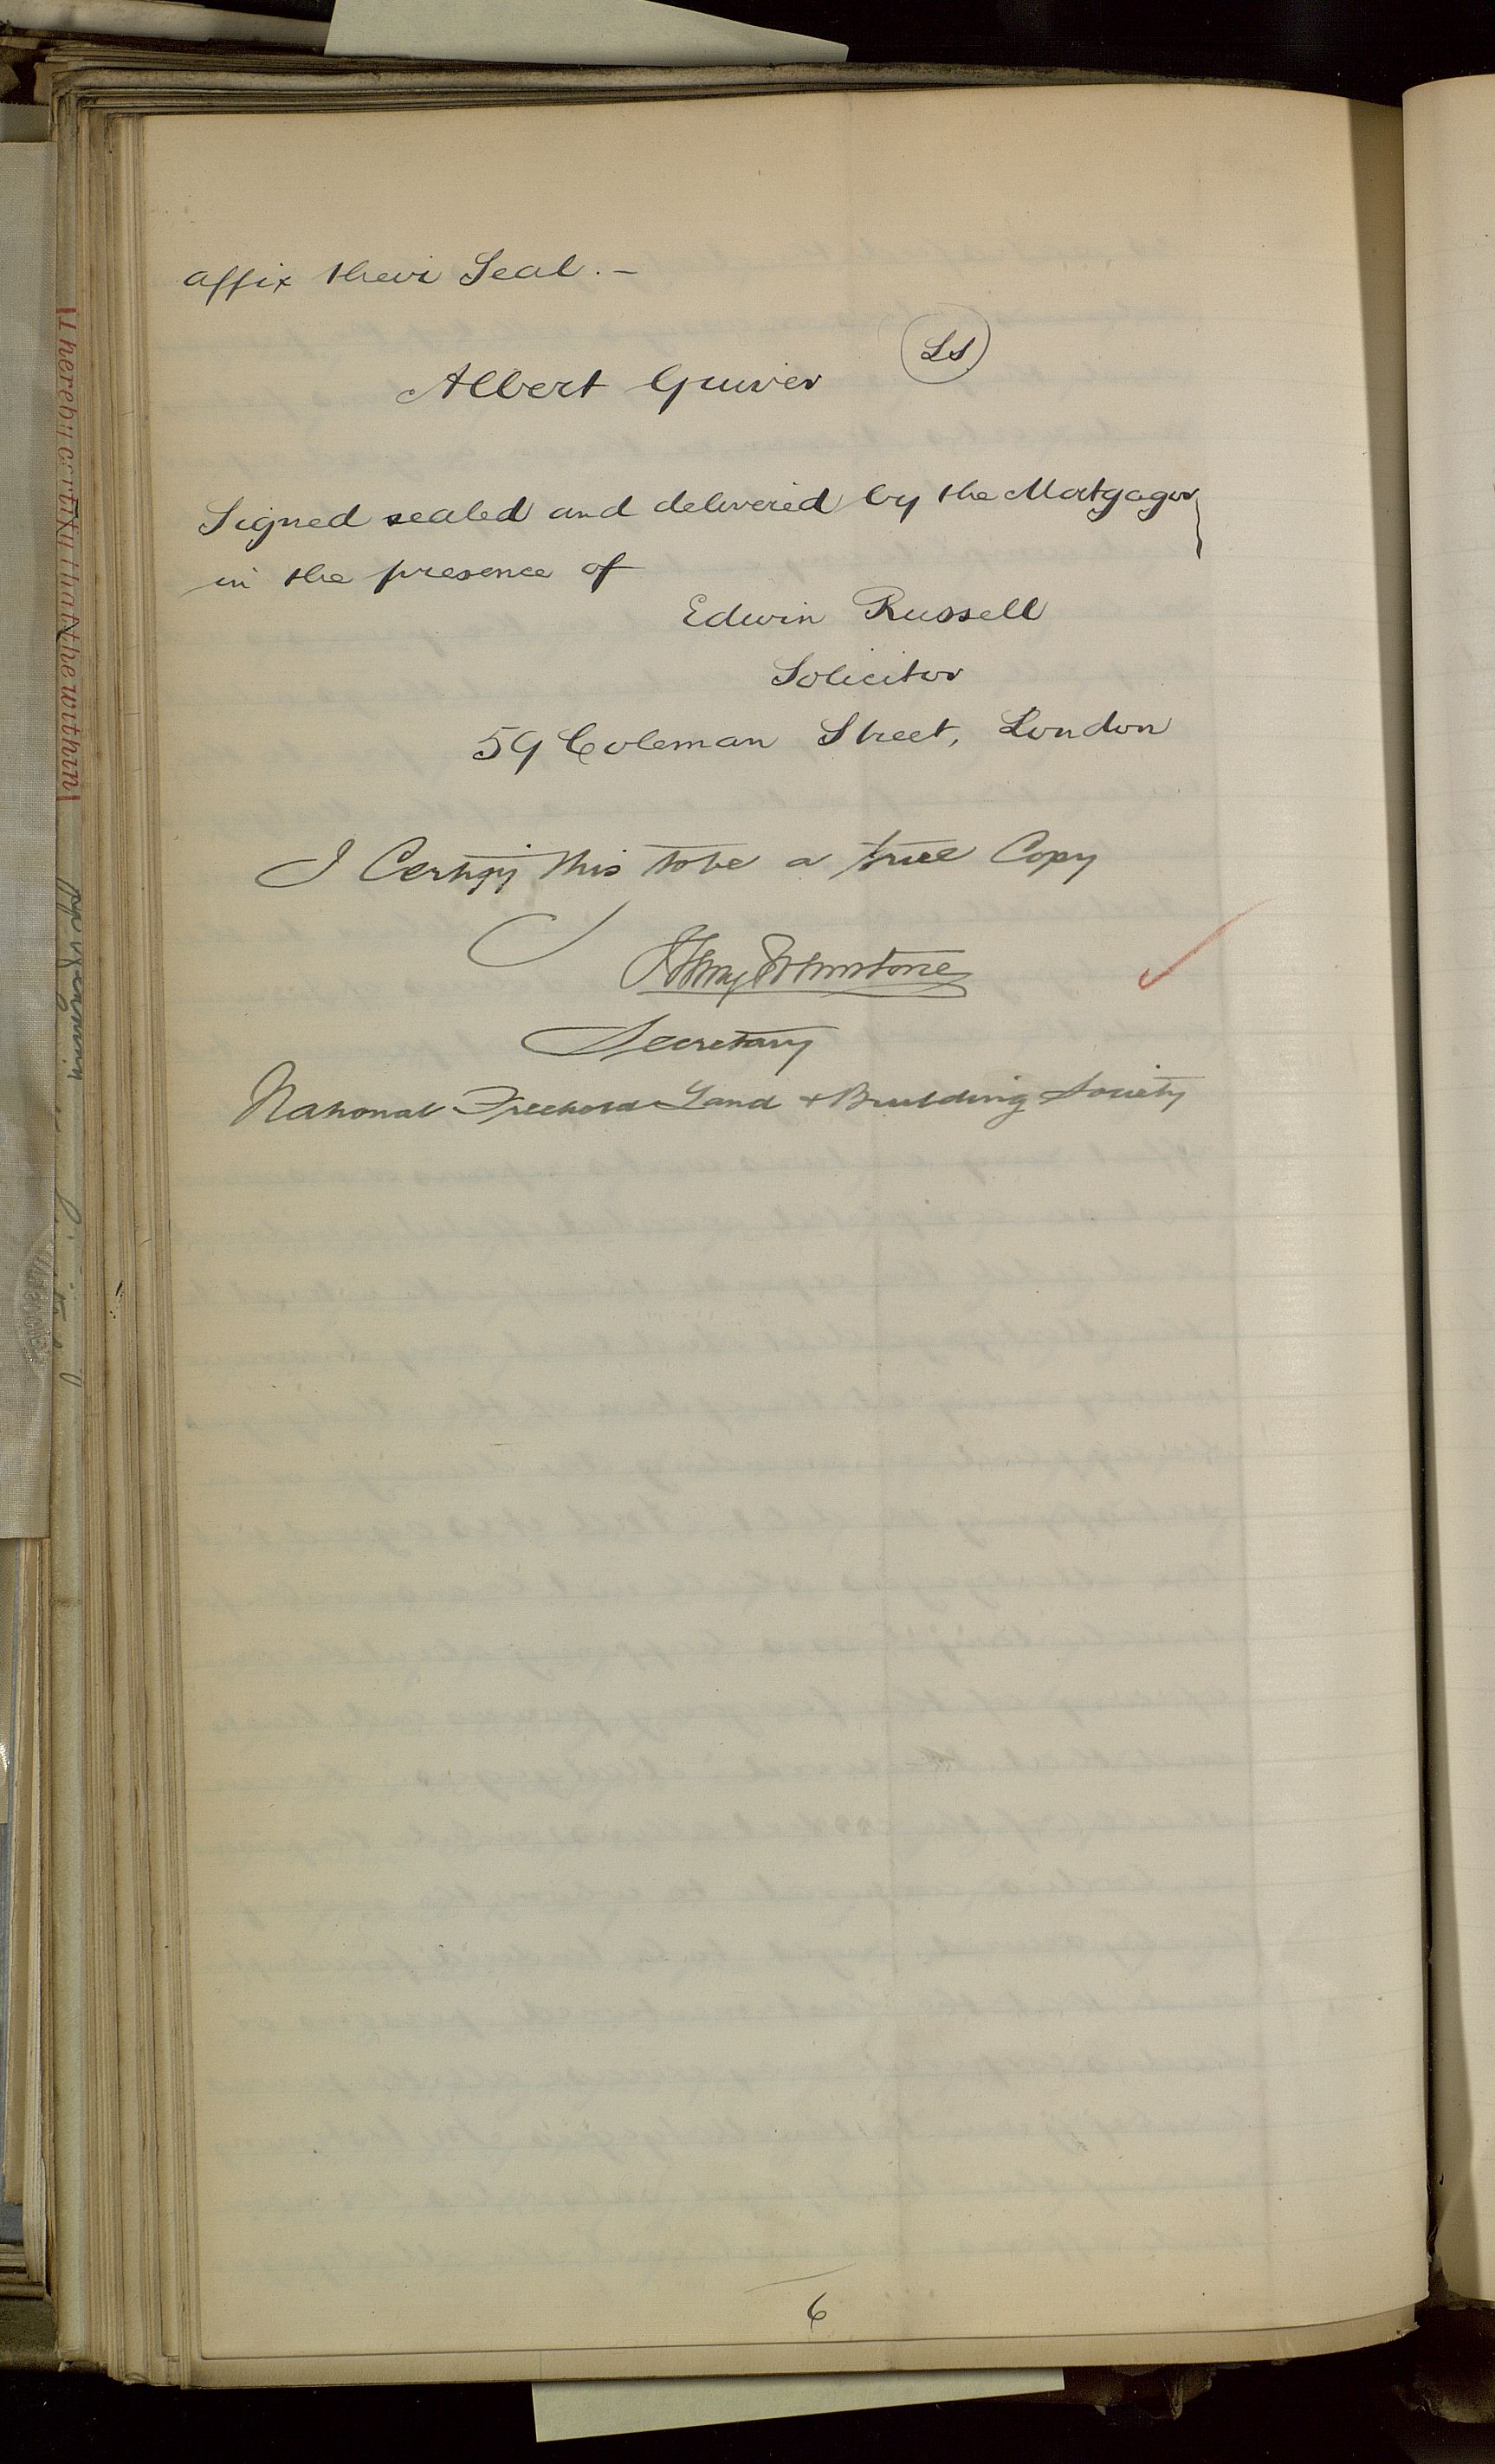 affix their Seal. –
Albert Guiver LS
Signed sealed and delivered by the Mortgagor
in the presence of
Edwin Russell
Solicitor
59 Coleman Street, London
I Certify this to be a true Copy
Secretary
National Freehold Land & Building Society
6
I hereby certify that the within